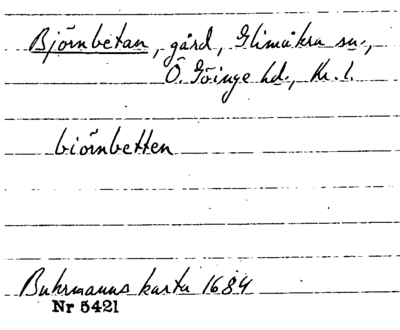 Björnbetan, gård, Glimåkra sn.,
Ö. Göinge hd., Kr. l.
biörnbetten
Buhrmanns karta 1684
Nr 5421